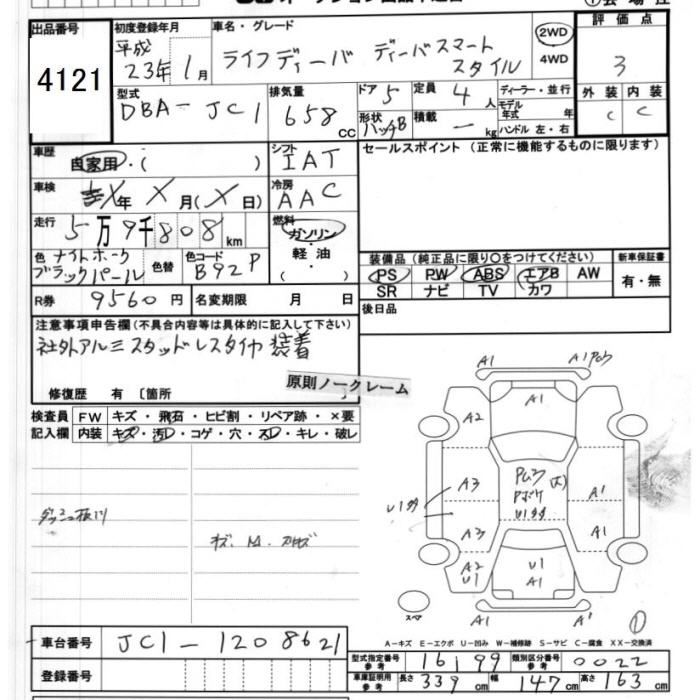 出品番号
4121
初度登録年月
平成
23年1月
車名・グレード
ライフディーバ ディーバスマート
スタイル
2WD
4WD
評価点
3
外装 内装
C C
型式
DBA-JC1
排気量
658
cc
ドア 5
形状 ハッチB
定員 4人
積載 - kg
ディーラー・並行
モデル年式 年
ハンドル 左・右
車歴
自家用・( )
シフト
IAT
セールスポイント (正常に機能するものに限ります)
車検
X年 X月(X日)
冷房
AAC
走行
5万9千808km
燃料
ガソリン
・
軽油
・
( )
色 ナイトホーク
ブラックパール
色替
色コード
B92P
装備品 (純正品に限り○をつけてください)
新車保証書
PS PW ABS エアB AW
SR ナビ TV カワ
有・無
R券 9560円
名変期限 月 日
後日品
注意事項申告欄 (不具合内容等は具体的に記入して下さい)
社外アルミスタッドレスタイヤ装着
修復歴 有 〔箇所
原則ノークレーム
検査員 FW キズ・飛石・ヒビ割・リペア跡・×要
記入欄 内装 キズ・汚レ・コゲ・穴・スレ・キレ・破レ
A1
A1
A1
A2
A3
A1
U1
A3
A1
A2
U1
U1
A1
A1
A1
スペア
A-キズ E-エクボ U-凹み W-補修跡 S-サビ C-腐食 XX-交換済
車台番号 JC1-1208621
登録番号
型式指定番号 参考 16199
類別区分番号 参考 0022
車庫証明用 参考 長さ 339cm 幅 147cm 高さ 163cm